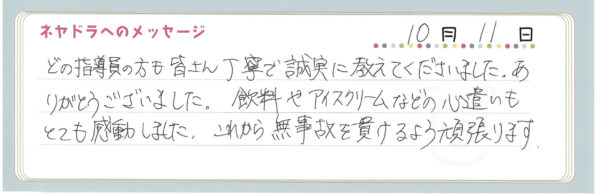 ネヤドラへのメッセージ
10月11日
どの指導員の方も皆さん丁寧で誠実に教えてくださいました。あ
りがとうございました。飲料やアイスクリームなどの心遣いも
とても感動しました。これから無事故を貫けるよう頑張ります。